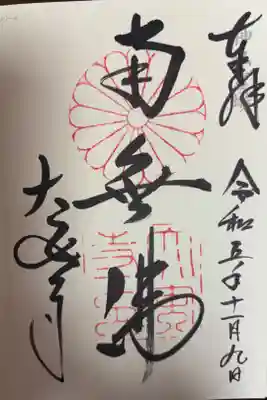 奉拝
令和五年十一月九日
南無佛